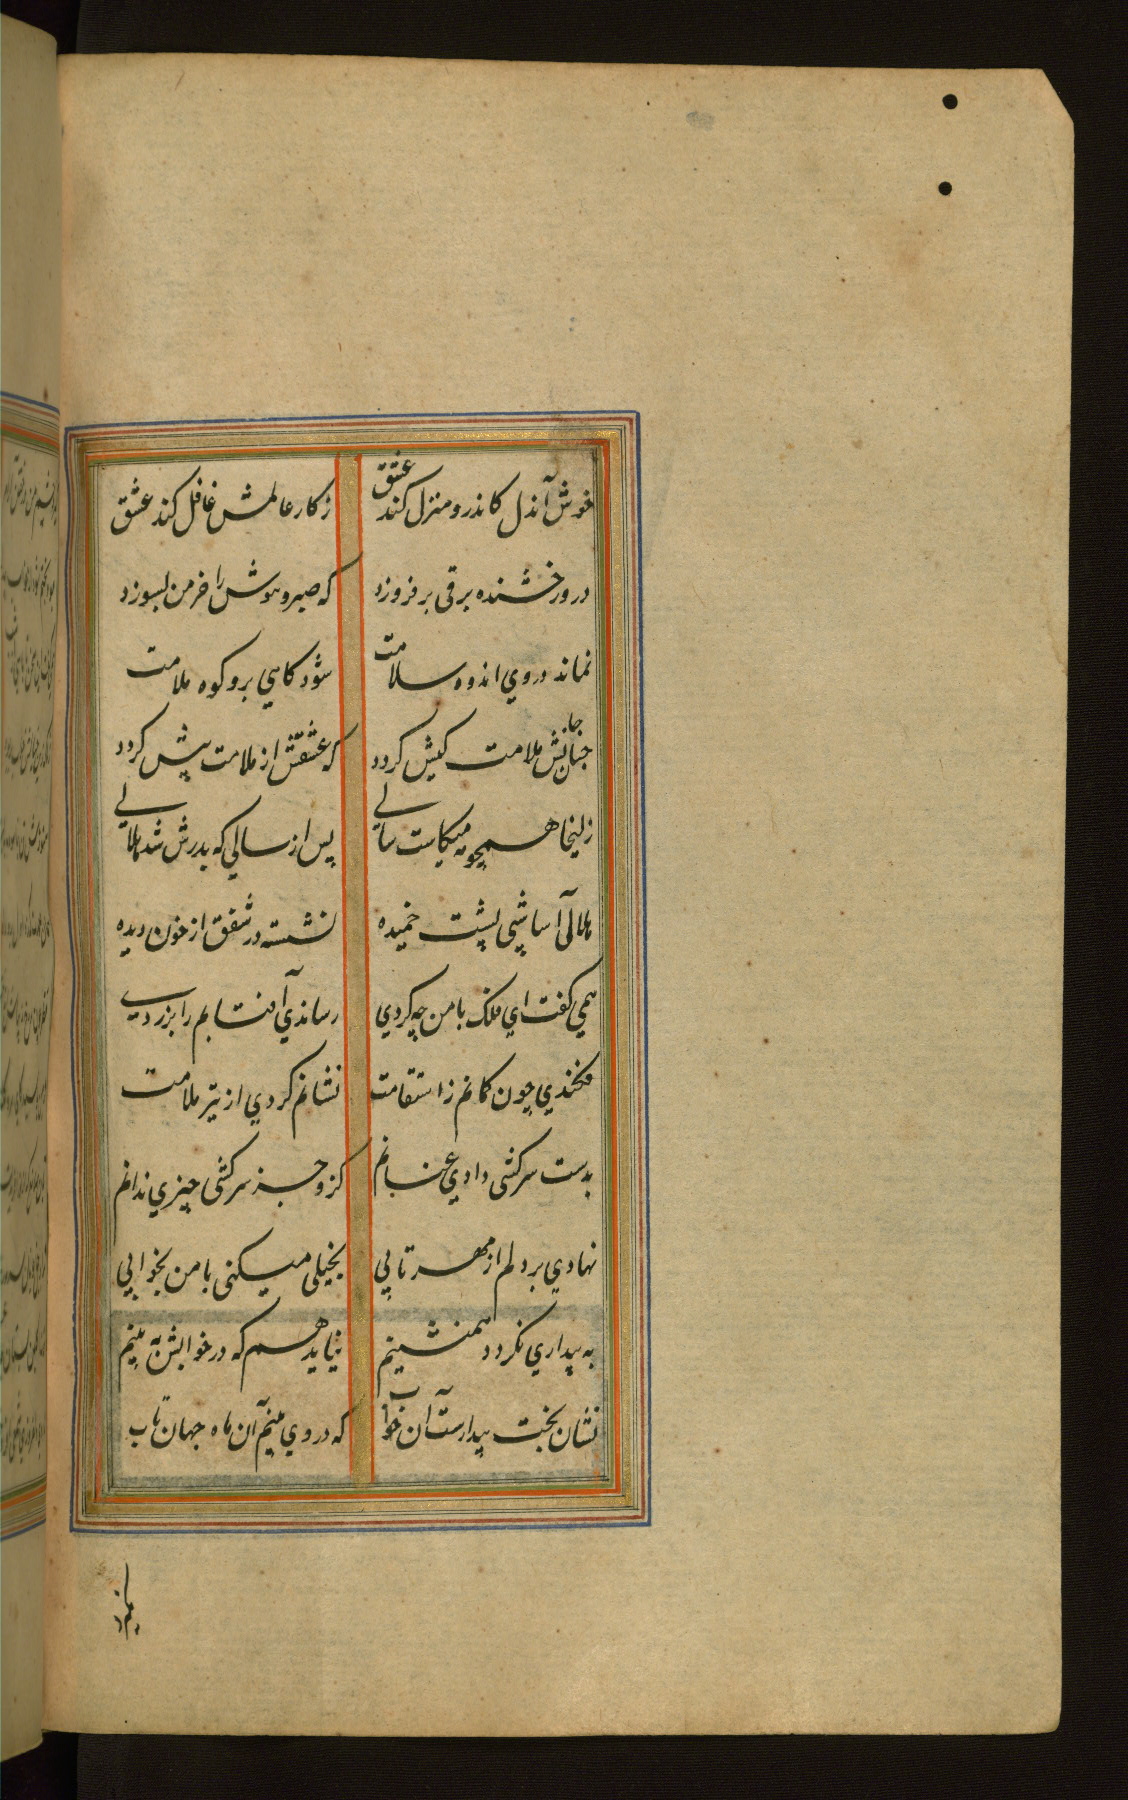 خوش آندل کاندرو منزل کند عشق ز کار عالمش غافل کند عشق
درو رخشنده برقی بر فروزد که صبر و هوش را خرمن بسوزد
نماند در وی اندوه سلامت شود کاهی برو کوه ملامت
چنان جانش ملامت کیش کردد که عشقش از ملامت پیش کردد
زلیخا همچو مه میکاست سالی پس از سالی که بدرش شد هلالی
هلال آسا شبی پشت خمیده نشسته در شفق از خون دیده
همی کفت ای فلک با من چه کردی رساندی آفتابم را بزردی
فکندی چون کمانم ز استقامت نشانم کردی از تیر ملامت
بدست سرکشی دادی عنانم کزو جز سرکشی چیزی ندانم
نهادی بر دلم از مهر تابی بخیلی میکنی با من بخوابی
به بیداری نکردد همنشینم نیاید هم که در خوابش به بینم
نشان بخت بیدارست آن خواب که در وی بینم آن ماه جهان تاب